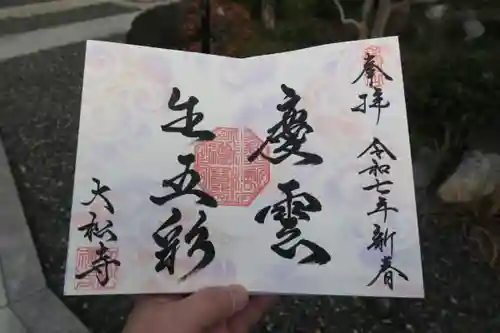 奉拝
令和七年新春
慶雲
生五彩
大松寺